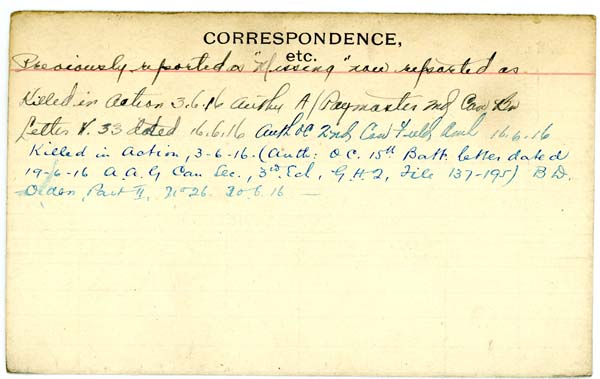 CORRESPONDENCE,
etc.
Previously reported as "Missing" now reported as
Killed in action 3.6.16 Authy A/Paymaster 2nd Can Bn
Letter V. 33 dated 16.6.16 Auth OC 2nd Can Field Amb 16-6-16
Killed in Action, 3-6-16. (Auth: O.C. 15th Batt. letter dated
19-6-16 A.A.G Can Sec., 3rd Ech, G.H.Q, File 137-195) B D.
Orders, Part II, No 26. 20.6.16 —